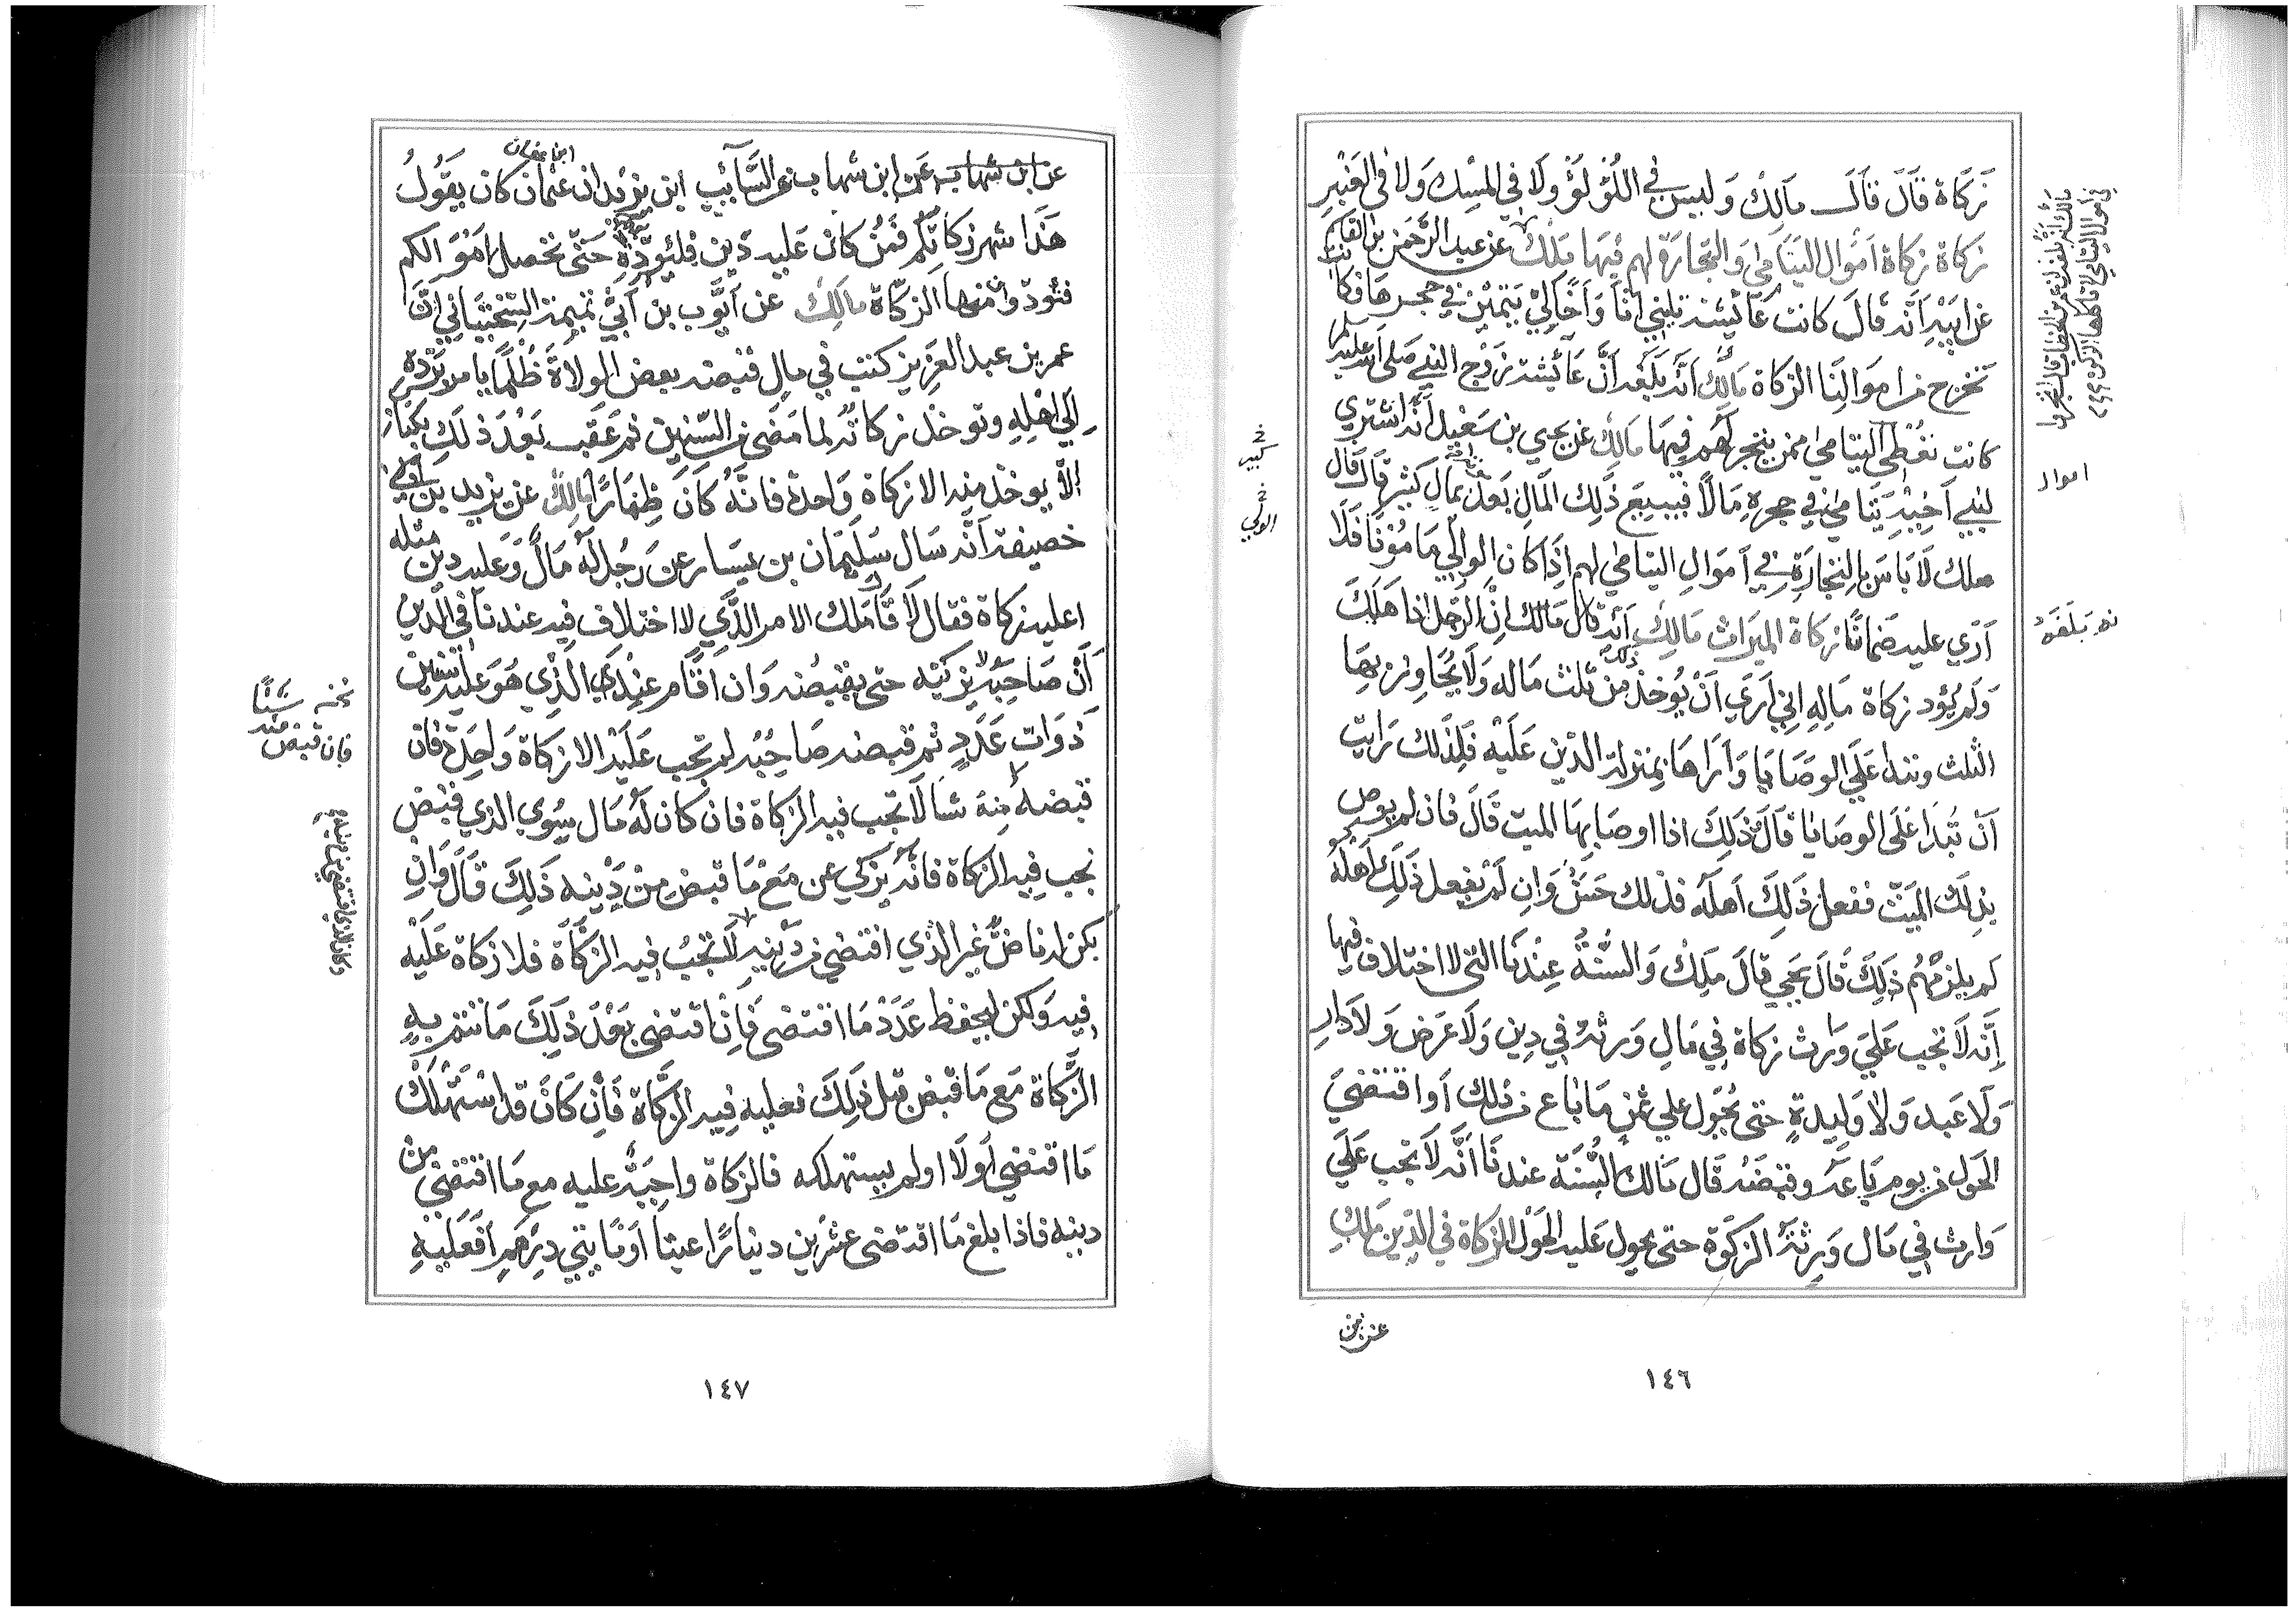 زكاة قال قال مالك وليس في اللؤلؤ ولا في المسك ولا في العنبر
زكاة زكاة أموال اليتامى والتجارة لهم فيها ملك عن عبد الرحمن بن القاسم
عن ابيه أنه قال كانت عائشة تليني أنا وأخا لي يتيمين في حجرها فكانت
تخرج من اموالنا الزكاة مالك أنه بلغه أن عائشة زوج النبي صلى الله عليه وسلم
كانت تعطي اليتامى من يتجر لهم فيها مالك عن يحيي بن سعيد أنه اشتري
لبني أخيه يتامى في حجره مالا فبيع ذلك المال بعد بمال كثير قال قال
ملك لا باس بالتجارة في أموال اليتامي لهم إذا كان الوالي مامونا فلا
أري عليه ضمانا زكاة الميراث مالك أنه قال مالك إن الرجل اذا هلك
ولم يؤد زكاة ماله إني أري أن يوخذ ذلك من ثلث ماله ولا يجاوز بها
الثلث وتبدا علي الوصايا وأراها بمنزلة الدين عليه فلذلك رايت
أن تبدا على الوصايا قال وذلك اذا اوصا بها الميت قال فان لم يوص
بذلك الميت ففعل ذلك أهله فذلك حسن وإن لم يفعل ذلك أهله
لم يلزمهم ذلك قال يحيي قال ملك والسنة عندنا التي لا اختلاف فيها
إنه لا تجب علي وارث زكاة في مال ورثه في دين ولا عرض ولا دار
ولا عبد ولا وليدة حتى يحول علي ثمن ما باع من ذلك أو اقتضي
الحول من يوم باعه وقبضه قال مالك السنة عندنا أنه لا تجب علي
وارث في مال ورثه الزكوة حتى يحول عليه الحول الزكاة في الدين ملك
كبير
الولي
اموال
بلغه
١٤٦
ابن عفان
عن ابن شهاب عن ابن شهاب عن السائب ابن يزيد ان عثمان كان يقول
هذا شهر زكاتكم فمن كان عليه دين فليؤد دينه حتى تحصل اموالكم
فتودوا منها الزكاة مالك عن أيوب بن أبي تميمة السختياني أن
عمر بن عبد العزيز كتب في مال قبضه بعض الولاة ظلما يامر برده
إلي اهله وتوخذ زكاته لما مضى من السنين ثم عقب بعد ذلك بكتاب
الا يوخذ منه الا زكاة واحدة فانه كان ضمارا مالك عن يزيد بن
خصيفة أنه سال سليمان بن يسار عن رجل له مال وعليه دين مثله
اعليه زكاة فقال لا قال ملك الامر الذي لا اختلاف فيه عندنا في الدين
أن صاحبه لا يزكيه حتى يقبضه وان أقام عند الذي هو عليه سنين
ذوات عدد ثم قبضه صاحبه لم تجب عليه الا زكاة واحدة فان
قبضه منه شا لا تجب فيه الزكاة فان كان له مال سوي الذي قبض
تجب فيه الزكاة فانه يزكي عن مع ما قبض من دينه ذلك قال وإن
يكن له ناض غير الذي اقتضى من دينه لا تجب فيه الزكاة فلا زكاة عليه
فيه ولكن ليحفظ عدد ما اقتضى فإن اقتضى بعد ذلك ما تتم به
الزكاة مع ما قبض قبل ذلك فعليه فيه الزكاة فإن كان قد استهلك
ما اقتضي أولا او لم يستهلكه فالزكاة واجبة عليه مع ما اقتضى من
دينه فاذا بلغ ما اقتضى عشرين دينارا عينا أو مايتي درهم فعليه
فان قبض منه
١٤٧